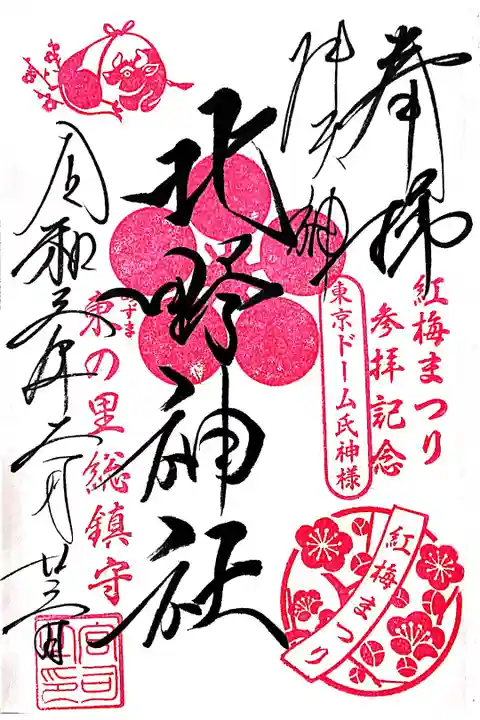 奉拝
紅梅まつり
参拝記念
牛天神
東京ドーム氏神様
北野神社
あずま
東の里総鎮守
令和五年二月廿三日
紅梅まつり
宮司之印